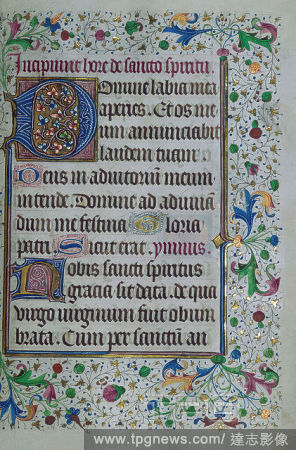 Incipiunt hore de sancto spiritu.
Domine labia mea
aperies. Et os me
um annunciabit
laudem tuam.
Deus in adiutorium meum
intende. Domine ad adiuuan
dum me festina Gloria
patri. Sicut erat. ymnus.
Nobis sancti spiritus
gracia sit data. de qua
uirgo uirginum fuit obum
brata. Cum per sanctū an
www.tpgnews.com/ 達志影像